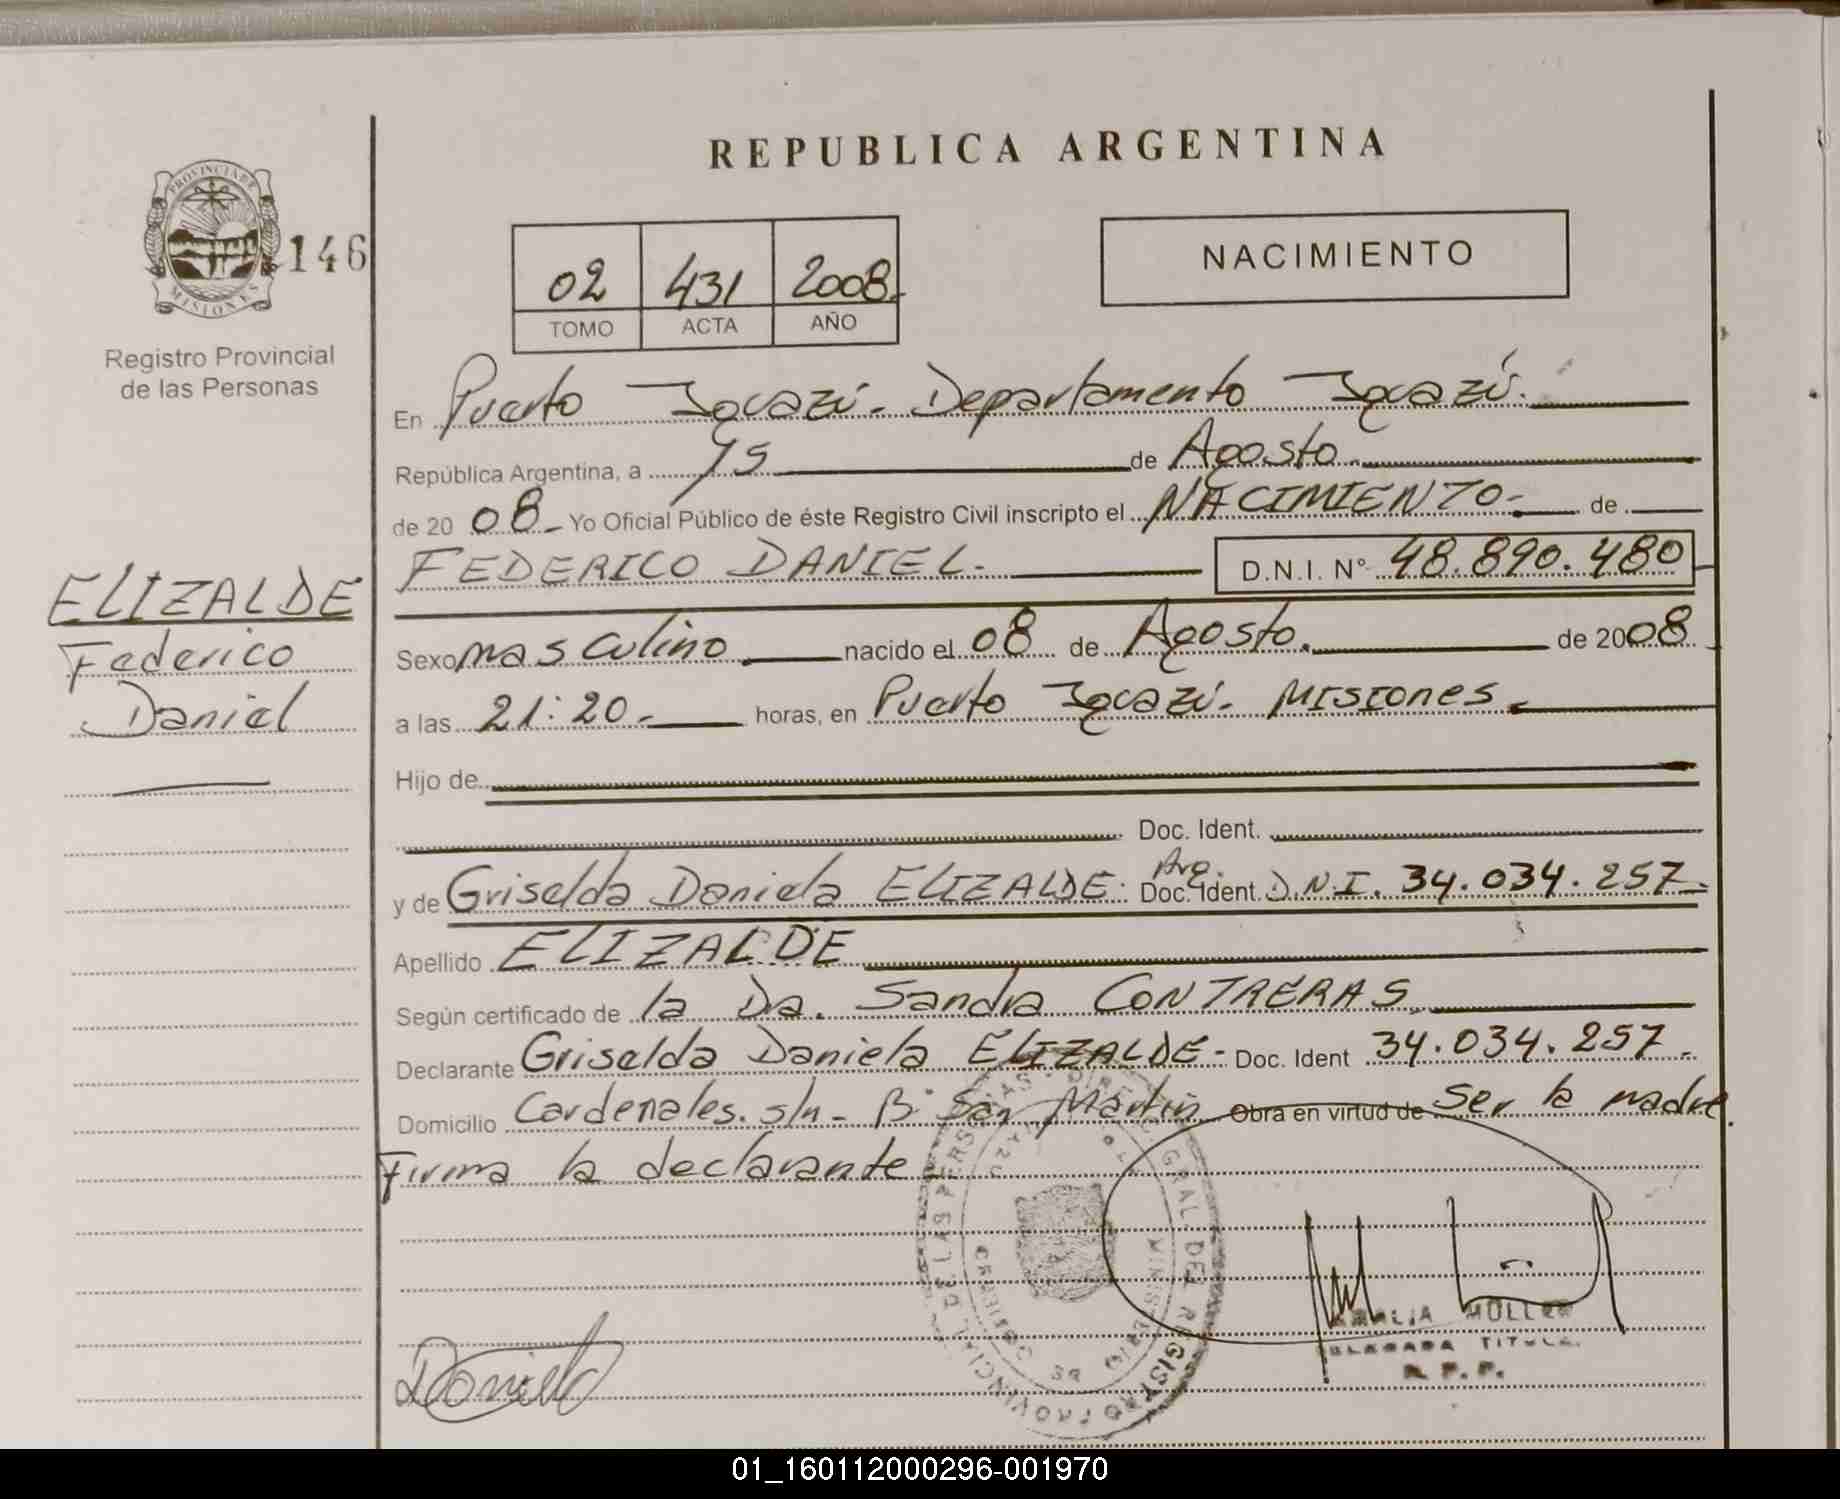 REPUBLICA ARGENTINA
PROVINCIA DE
MISIONES
146
Registro Provincial
de las Personas
02 431 2008.
TOMO ACTA AÑO
NACIMIENTO
En Puerto Iguazú. Departamento Iguazú.
República Argentina, a 15 de Agosto.
de 20 08 Yo Oficial Público de éste Registro Civil inscripto el NACIMIENTO. de
FEDERICO DANIEL. D.N.I. Nº 48.890.480
ELIZALDE
Federico
Daniel
Sexo masculino nacido el 08 de Agosto. de 2008
a las 21:20. horas, en Puerto Iguazú. MISIONES.
Hijo de
Doc. Ident.
y de Griselda Daniela ELIZALDE. Arg. Doc. Ident. D.N.I. 34.034.257.
Apellido ELIZALDE
Según certificado de la Da. Sandra CONTRERAS
Declarante Griselda Daniela ELIZALDE- Doc. Ident 34.034.257.
Domicilio Cardenales. s/n - Bº San Martín Obra en virtud de Ser la madre.
Firma la declarante
Daniela
MULLER
TITULAR
R.P.P.
01_160112000296-001970